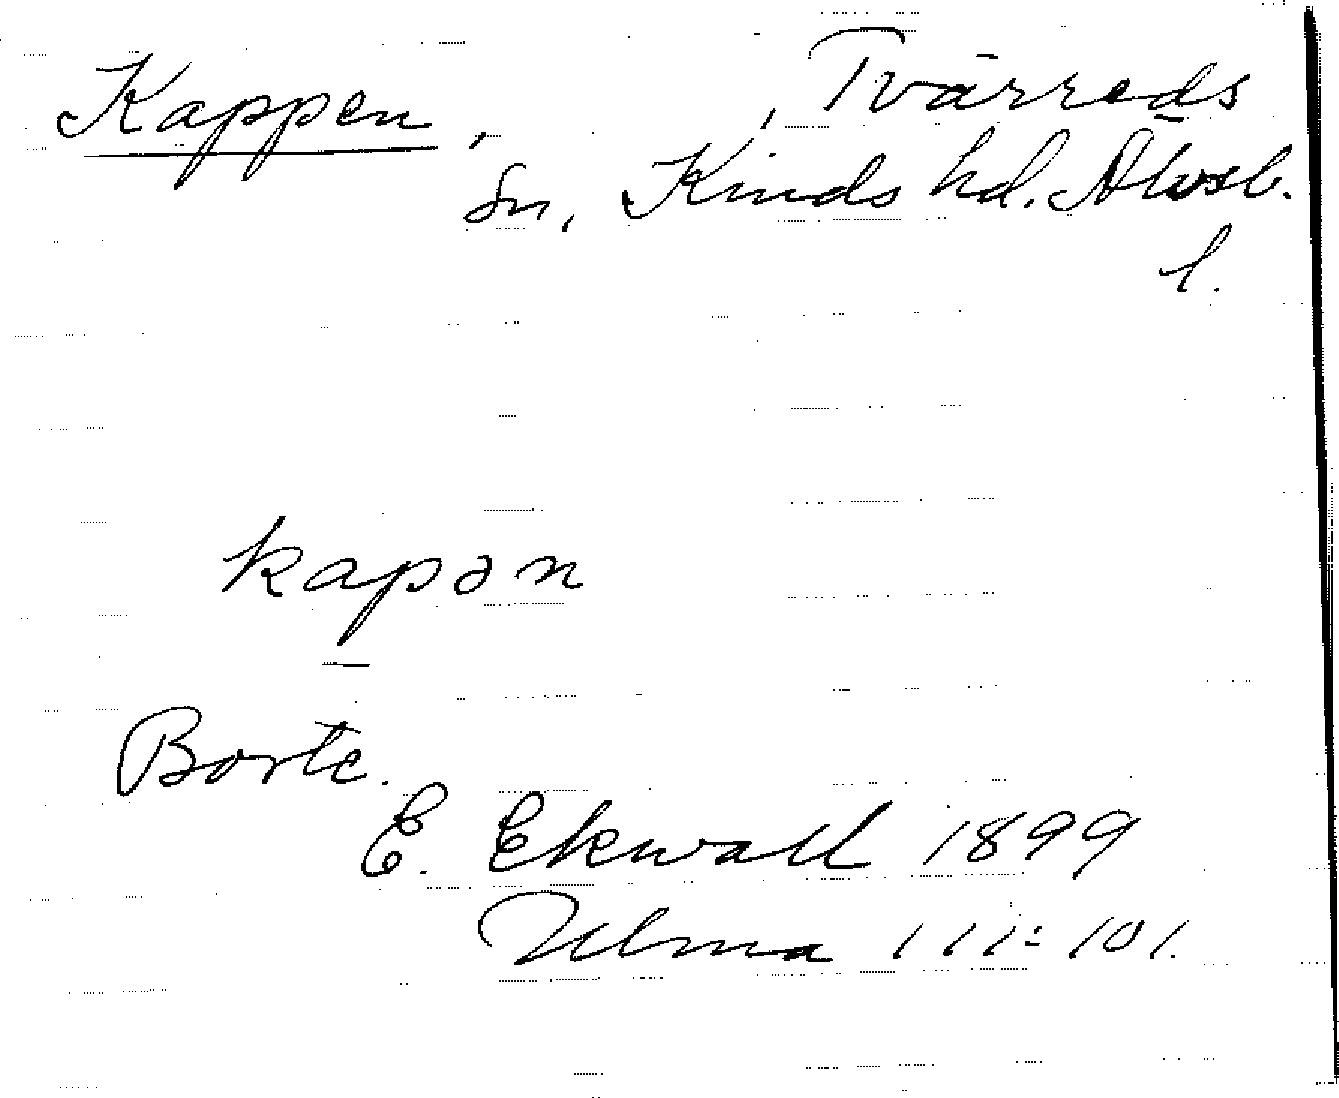 Kappen, , Tvärreds
sn, Kinds hd. Älvsb.
l.
kapən
Borte.
E. Ekwall 1899
Ulma 111:101.